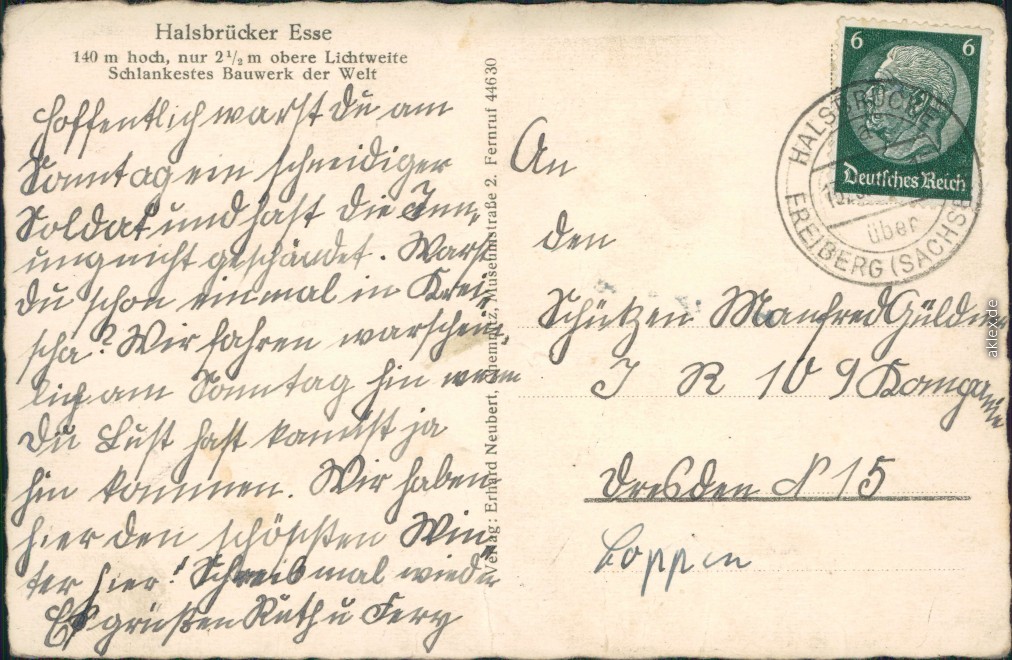 Halsbrücker Esse
140 m hoch, nur 2 1/2 m obere Lichtweite
Schlankestes Bauwerk der Welt
Hoffentlich warst du am
Sonntag ein schneidiger
Soldat und hast die Inn,
ung nicht geschändet. Warst
du schon einmal in Krei,
scha? Wir fahren warschein,
lich am Sonntag hin wenn
du Lust hast kannst ja
hin kommen. Wir haben
hier den schönsten Win,
ter hier! Schreib mal wieder
Es grüßen Ruth u Ferry
Verlag: Erhard Neubert, Chemnitz, Museumstraße 2. Fernruf 44630
6 6
Deutsches Reich
HALSBRÜCKE
über
FREIBERG (SACHSEN)
An
den
Schützen Manfred Güldner
I R 10 9 Kompanie
Dresden N 15
aklex.de